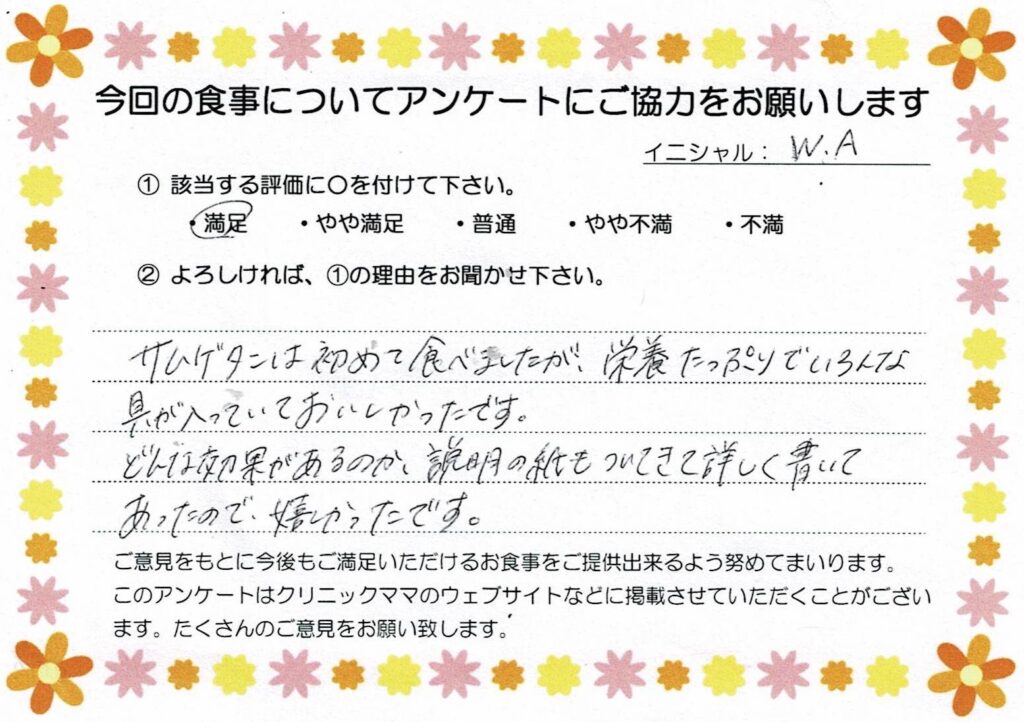 今回の食事についてアンケートにご協力をお願いします
イニシャル： W.A
① 該当する評価に〇を付けて下さい。
・満足 ・やや満足 ・普通 ・やや不満 ・不満
② よろしければ、①の理由をお聞かせ下さい。
サムゲタンは初めて食べましたが、栄養たっぷりでいろんな
具が入っていておいしかったです。
どんな効果があるのか、説明の紙もついてきて詳しく書いて
あったので、嬉しかったです。
ご意見をもとに今後もご満足いただけるお食事をご提供出来るよう努めてまいります。
このアンケートはクリニックママのウェブサイトなどに掲載させていただくことがござい
ます。たくさんのご意見をお願い致します。